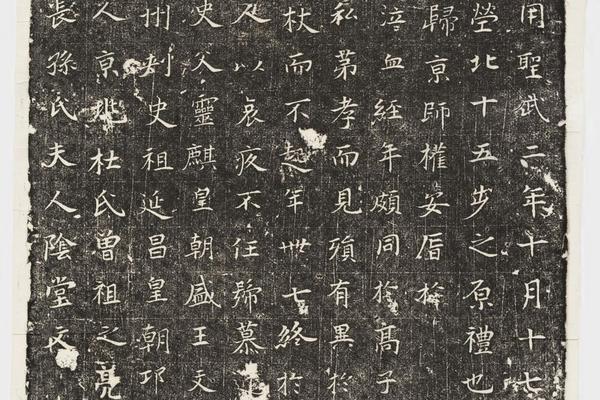 長孫氏夫人陰堂文
人京兆杜氏曾祖之亮
州刺史祖延昌皇朝邛
史父靈麒皇朝盛王
以哀疚不任號慕
杖而不起年卅七終於
私第孝而見殞有異於
血經年頗同於高子
歸京師權安厝於
塋北十五步之原禮也
用聖武二年十月十七